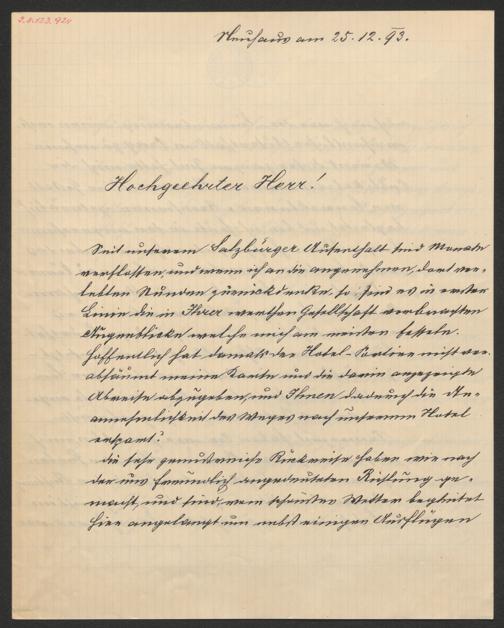 I.N.123.924
Neuhaus am 25. 12. 93.
Hochgeehrter Herr!
Seit unserem Salzburger Aufenthalt sind Monate
verflossen, und wenn ich an die angenehmen, dort ver-
lebten Stunden zurückdenke, so sind es in erster
Linie die in Ihrer werthen Gesellschaft verbrachten
Augenblicke welche mich am meisten fesseln.
Hoffentlich hat damals der Hotel-Portier nicht ver-
absäumt meine Karte und die darin angezeigte
Abreise abzugeben, und Ihnen dadurch die An-
annehmlichkeit des Weges nach unserem Hotel
erspart?
Die sehr genussreiche Rückreise haben wir nach
der uns freundlich angedeuteten Richtung ge-
macht, und sind, vom schönsten Wetter begleitet
hier angelangt um nebst einigen Ausflügen